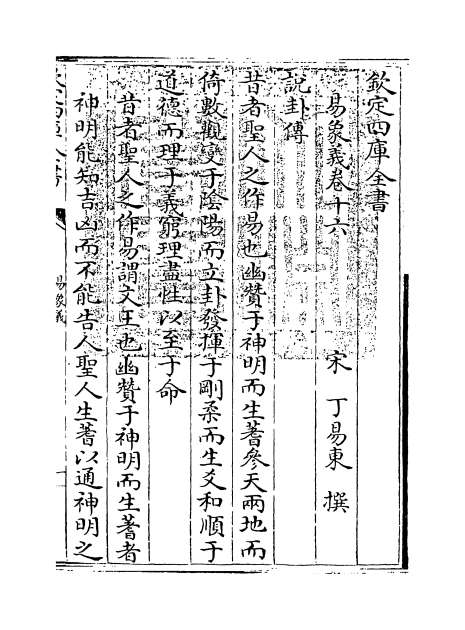 欽定四庫全書
易象義卷十六
宋 丁易東 撰
說卦傳
昔者聖人之作易也幽贊于神明而生蓍參天兩地而
倚數觀變于陰陽而立卦發揮于剛柔而生爻和順于
道德而理于義窮理盡性以至于命
昔者聖人之作易謂文王也幽贊于神明而生蓍者
神明能知吉凶而不能告人聖人生蓍以通神明之
易象義